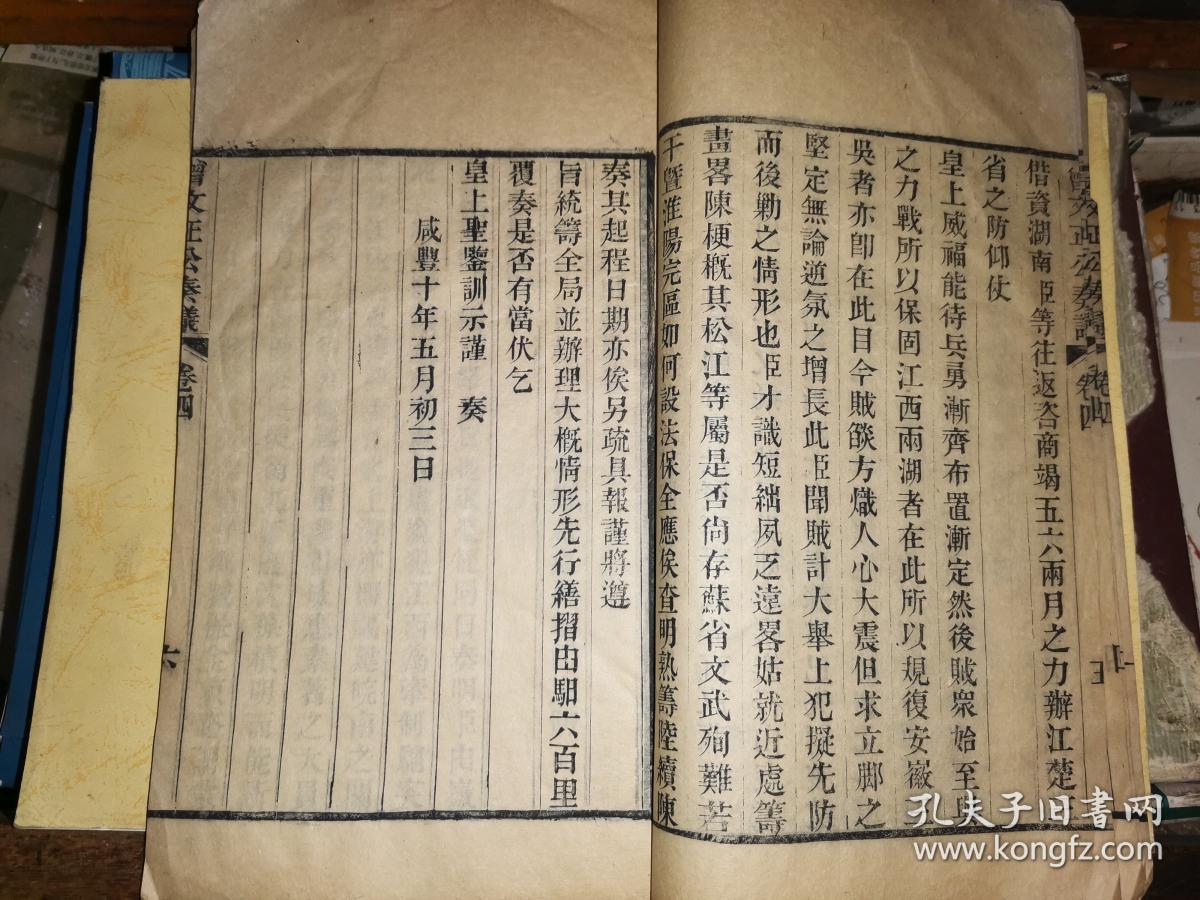 曾文正公奏議 卷四
五
借資湖南臣等往返咨商竭五六兩月之力辦江楚
省之防仰仗
皇上威福能待兵勇漸齊布置漸定然後賊衆始至與
之力戰所以保固江西兩湖者在此所以規復安徽
吳者亦卽在此目今賊燄方熾人心大震但求立脚之
堅定無論逆氛之增長此臣聞賊計大舉上犯擬先防
而後勦之情形也臣才識短絀夙乏遠畧姑就近處籌
畫畧陳梗概其松江等屬是否尙存蘇省文武殉難若
干曁淮陽完區如何設法保全應俟查明熟籌陸續陳
奏其起程日期亦俟另疏具報謹將遵
旨統籌全局並辦理大概情形先行繕摺由馹六百里
覆奏是否有當伏乞
皇上聖鑒訓示謹 奏
咸豐十年五月初三日
曾文正公奏議 卷四
六
孔夫子旧书网
www.kongfz.com